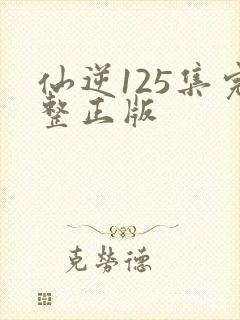 仙逆125集完
整正版
克劳德